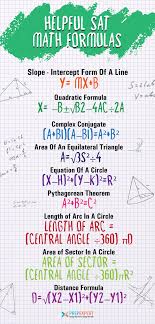 HELPFUL SAT
MATH FORMULAS
Slope - Intercept Form Of A Line
Y= MX+B
Quadratic Formula
X= -B±√B2-4AC÷2A
Complex Conjugate
(A+BI)(A-BI)=A2+B2
Area Of An Equilateral Triangle
A=√3S2÷4
Equation Of A Circle
(X-H)2+(Y-K)2=R2
Pythagorean Theorem
A2+B2=C2
Length of Arc In A Circle
LENGTH OF ARC =
(CENTRAL ANGLE ÷360) πD
Area of Sector In A Circle
AREA OF SECTOR =
(CENTRAL ANGLE ÷360) πR2
Distance Formula
D=√(X2-X1)2+(Y2-Y1)2
PREPEXPERT